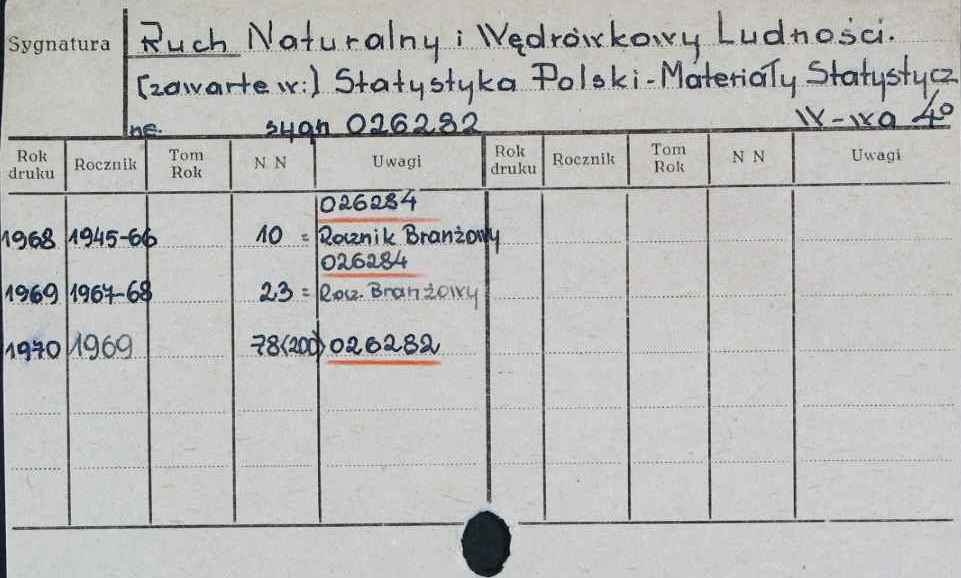 Sygnatura
Ruch Naturalny i Wędrówkowy Ludności.
(zawarte w:) Statystyka Polski-Materiały Statystycz
ne. sygn 026282 W-wa 4º
Rok druku Rocznik Tom Rok N N Uwagi Rok druku Rocznik Tom Rok N N Uwagi
026284
1968 1945-66 10 = Rocznik Branżowy
026284
1969 1967-68 23 = Rocz. Branżowy
1970 1969 78(200) 026282